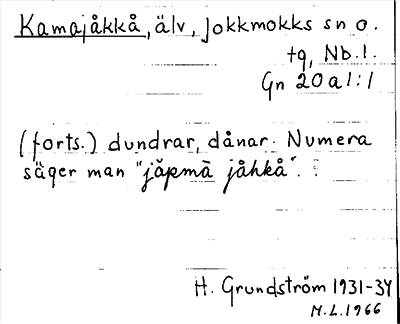 Kamajåkkå, älv, Jokkmokks sn o.
tg, Nb.l.
Gn 20a1:1
(forts.) dundrar, dånar. Numera
säger man "jåpmà jåhkå".
H. Grundström 1931-34
M.L.1966